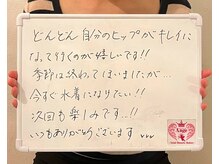 どんどん自分のヒップがキレイに
なって行くのが嬉しいです!!
季節は終わってしまいましたが…
今すぐ水着になりたい!!
次回も楽しみです..!!
いつもありがとうございます
Ange